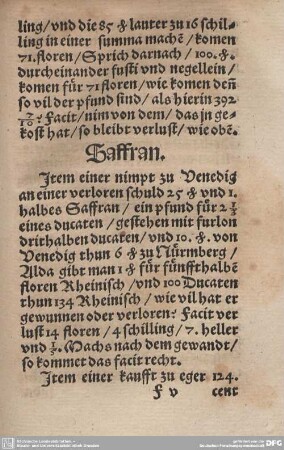 ling/vnd die 85 ℔ lauter zu 16 schil-
ling in einer summa machē/komen
71.floren/Sprich darnach/100.℔.
durcheinander fusti vnd negellein/
komen für 71 floren/wie komen deñ
so vil der pfund sind/als hierin 392
7/10? Facit/nim von dem/das jn ge-
kost hat/so bleibt verlust/wie obē.
Saffran.
Item einer nimpt zu Venedig
an einer verloren schuld 25 ℔ vnd 1.
halbes Saffran/ein pfund für 2 1/3
eines ducaten/gestehen mit furlon
drithalben ducaten/vnd 10.℔. von
Venedig thun 6 ℔ zu Nürmberg/
Alda gibt man 1 ℔ für fünffthalbē
floren Rheinisch/vnd 100 Ducaten
thun 134 Rheinisch/wie vil hat er
gewunnen oder verloren? Facit ver
lust 14 floren/4 schilling/7. heller
vnd 1/5. Machs nach dem gewandt/
so kommet das facit recht.
Item einer kaufft zu eger 124.
F v cent